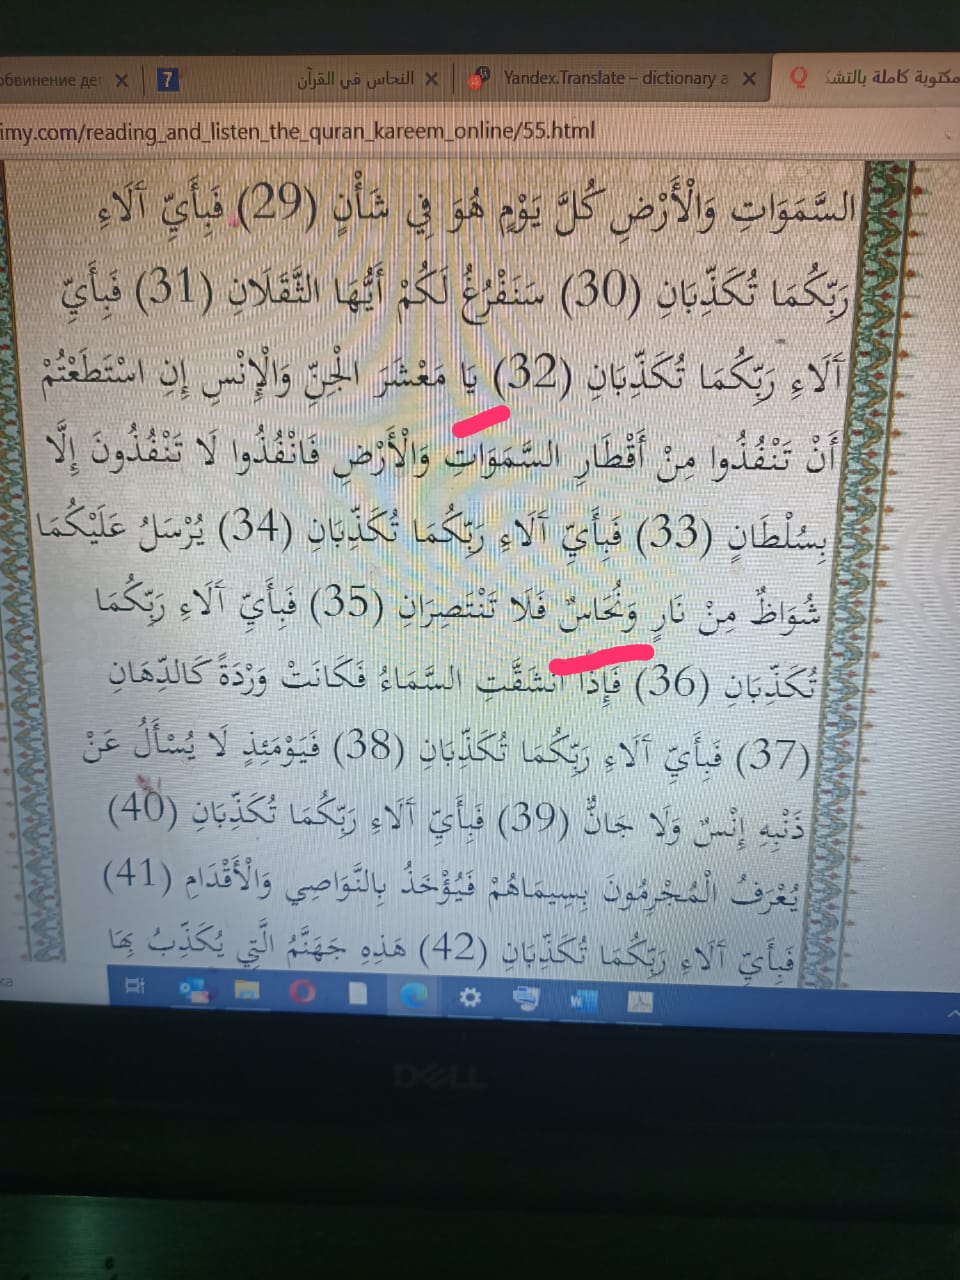 обвинение де
7
النحاس في القرآن
Yandex.Translate – dictionary a
مكتوبة كاملة بالتشك
imy.com/reading_and_listen_the_quran_kareem_online/55.html
السَّمَوَاتِ وَالْأَرْضِ كُلَّ يَوْمٍ هُوَ فِي شَأْنٍ (29) فَبِأَيِّ آَلَاءِ
رَبِّكُمَا تُكَذِّبَانِ (30) سَنَفْرُغُ لَكُمْ أَيُّهَا الثَّقَلَانِ (31) فَبِأَيِّ
آَلَاءِ رَبِّكُمَا تُكَذِّبَانِ (32) يَا مَعْشَرَ الْجِنِّ وَالْإِنْسِ إِنِ اسْتَطَعْتُمْ
أَنْ تَنْفُذُوا مِنْ أَقْطَارِ السَّمَوَاتِ وَالْأَرْضِ فَانْفُذُوا لَا تَنْفُذُونَ إِلَّا
بِسُلْطَانٍ (33) فَبِأَيِّ آَلَاءِ رَبِّكُمَا تُكَذِّبَانِ (34) يُرْسَلُ عَلَيْكُمَا
شُوَاظٌ مِنْ نَارٍ وَنُحَاسٌ فَلَا تَنْتَصِرَانِ (35) فَبِأَيِّ آَلَاءِ رَبِّكُمَا
تُكَذِّبَانِ (36) فَإِذَا انْشَقَّتِ السَّمَاءُ فَكَانَتْ وَرْدَةً كَالدِّهَانِ
(37) فَبِأَيِّ آَلَاءِ رَبِّكُمَا تُكَذِّبَانِ (38) فَيَوْمَئِذٍ لَا يُسْأَلُ عَنْ
ذَنْبِهِ إِنْسٌ وَلَا جَانٌّ (39) فَبِأَيِّ آَلَاءِ رَبِّكُمَا تُكَذِّبَانِ (40)
يُعْرَفُ الْمُجْرِمُونَ بِسِيمَاهُمْ فَيُؤْخَذُ بِالنَّوَاصِي وَالْأَقْدَامِ (41)
فَبِأَيِّ آَلَاءِ رَبِّكُمَا تُكَذِّبَانِ (42) هَذِهِ جَهَنَّمُ الَّتِي يُكَذِّبُ بِهَا
DELL